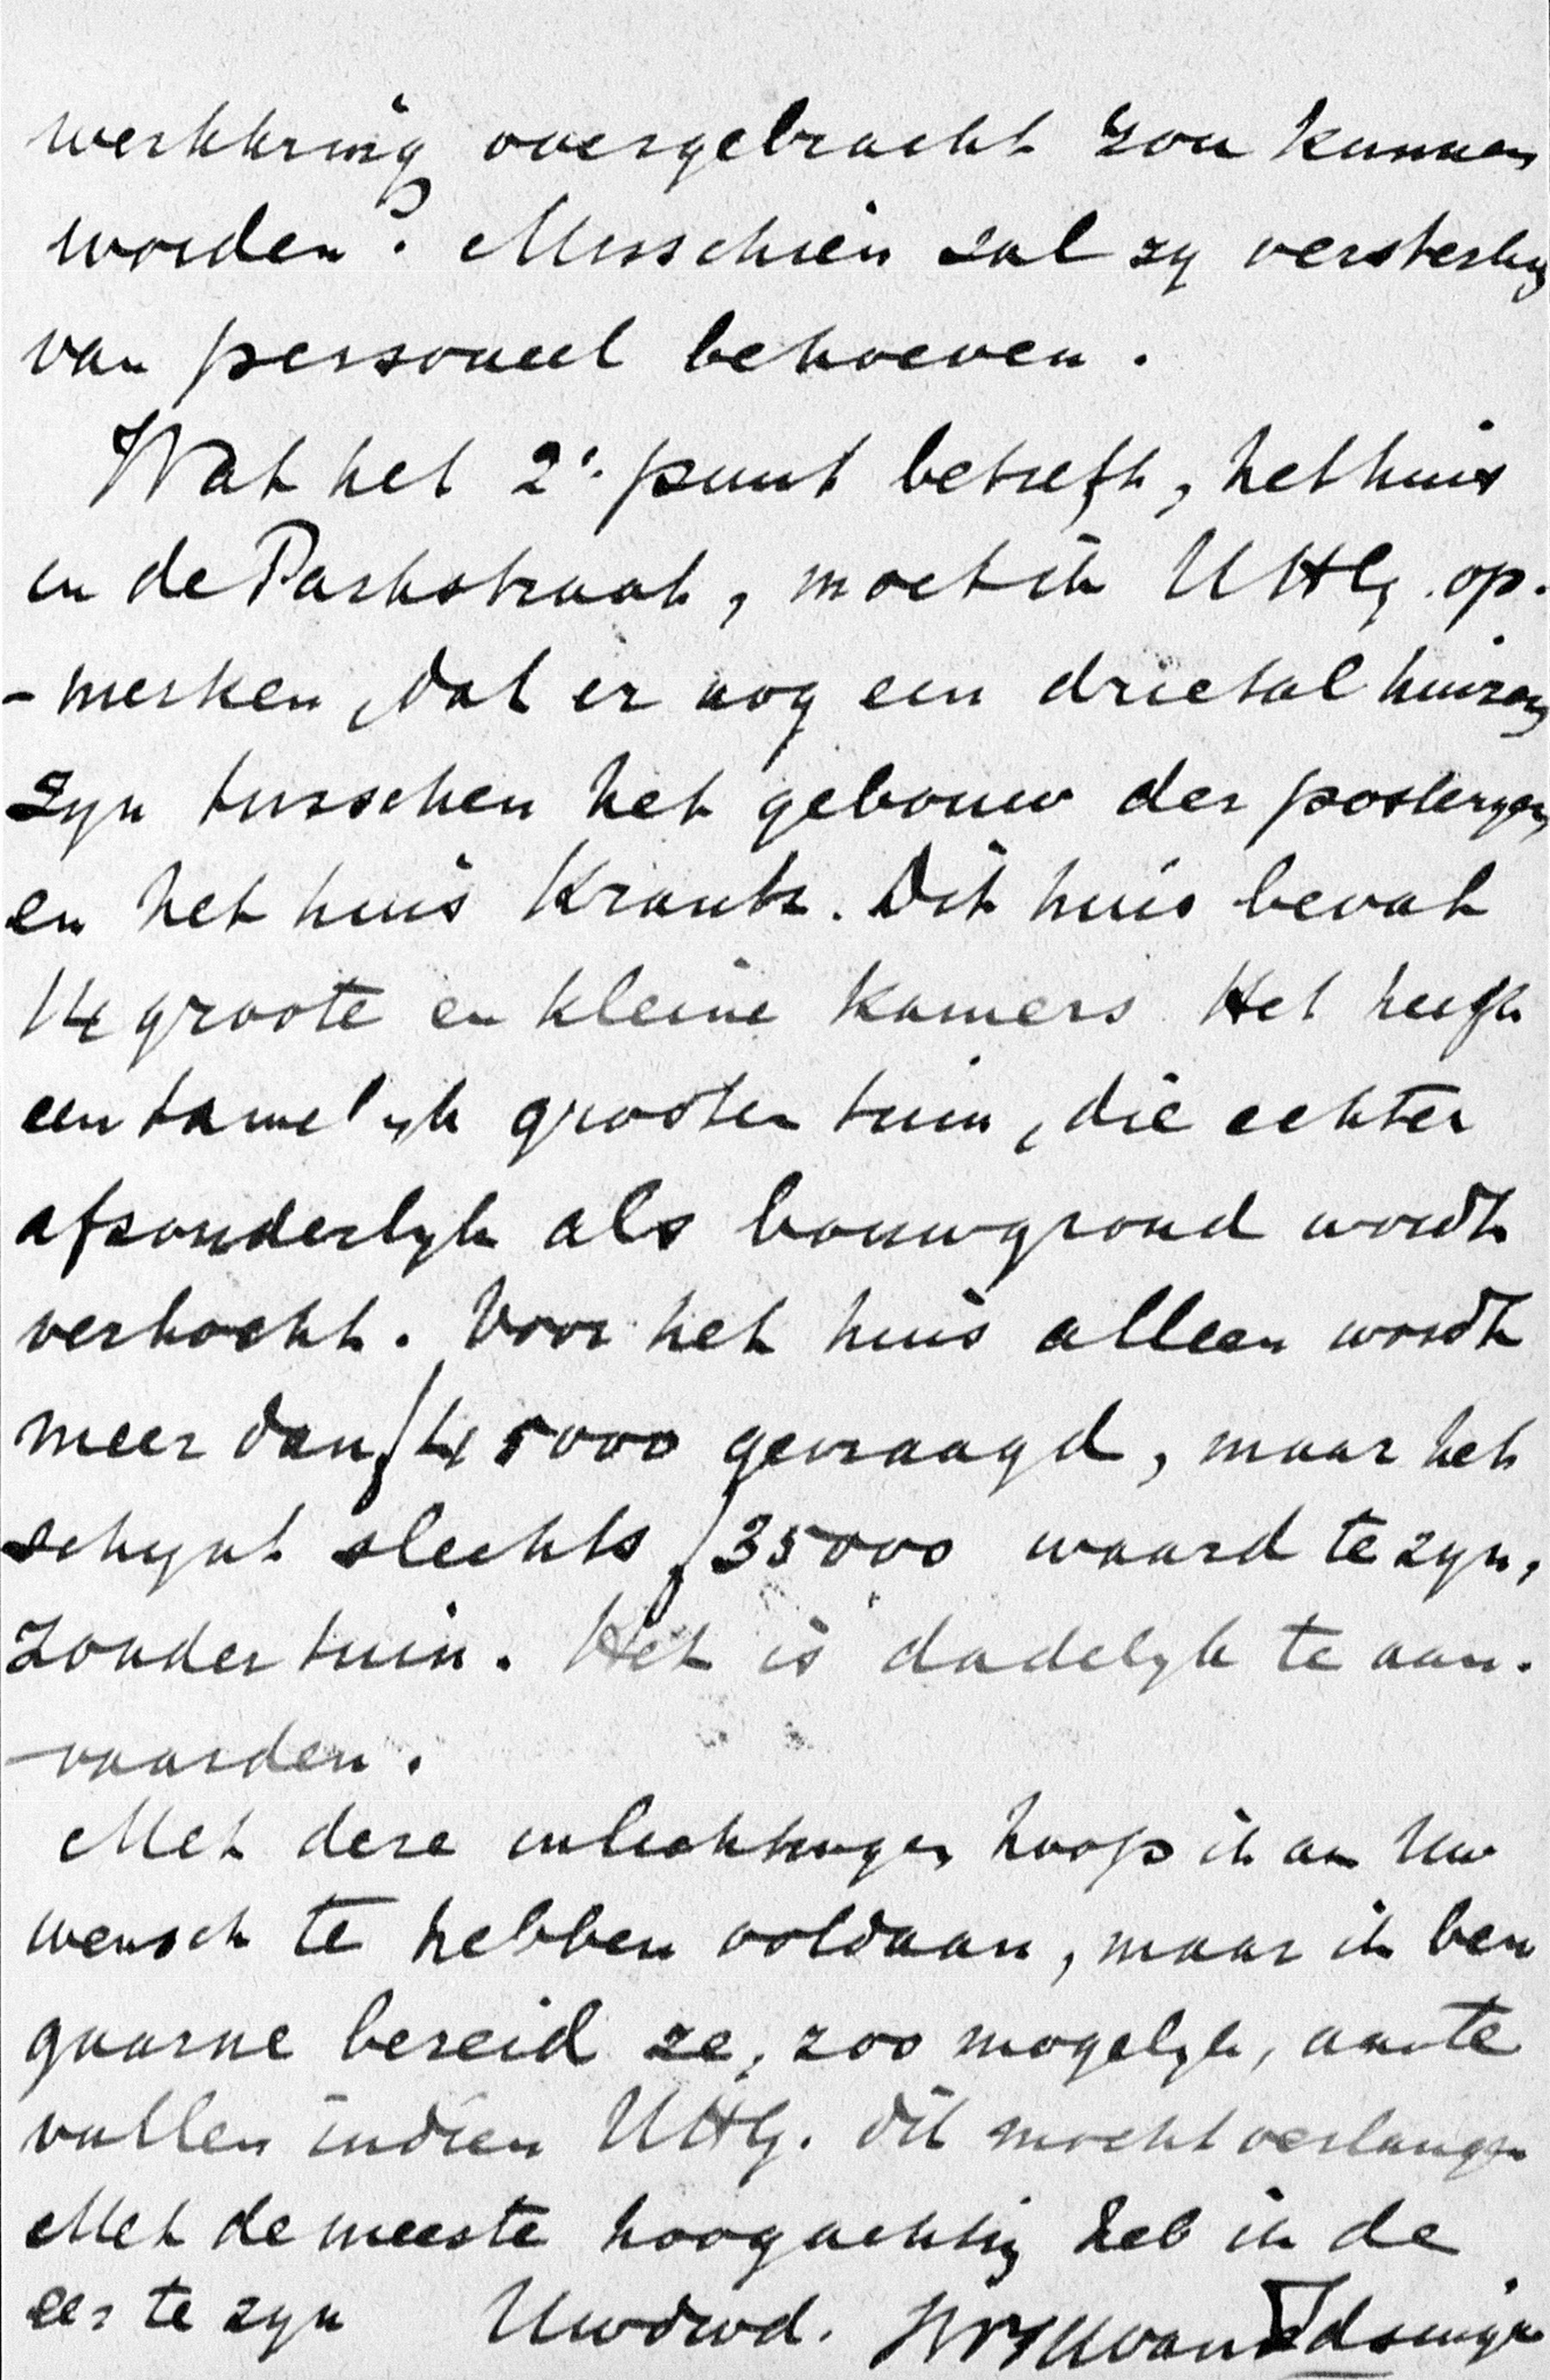 werkkring overgebracht zou kunnen
worden? Misschien zal zy versterking
van personeel behoeven.
Wat het 2e punt betreft, het huis
in de Parkstraat, moet ik UHG. op-
-merken, dat er nog een drietal huizen
zyn tusschen het gebouw der posteryen
en het huis Krantz. Dit huis bevat
14 groote en kleine kamers. Het heeft
een tamelyk grooten tuin, die echter
afsonderlyk als bouwgrond wordt
verkocht. Voor het huis alleen wordt
meer dan ƒ45000 gevraagd, maar het
schynt slechts ƒ35000 waard te zyn,
zonder tuin. Het is dadelyk te aan-
-vaarden.
Met deze inlichtingen hoop ik aan Uw
wensch te hebben voldaan, maar ik ben
gaarne bereid ze, zoo mogelyk, aan te
vullen indien UHG. dit mocht verlangen
Met de meeste hoogachting heb ik de
eer te zyn Uwdwd. van Idsinga